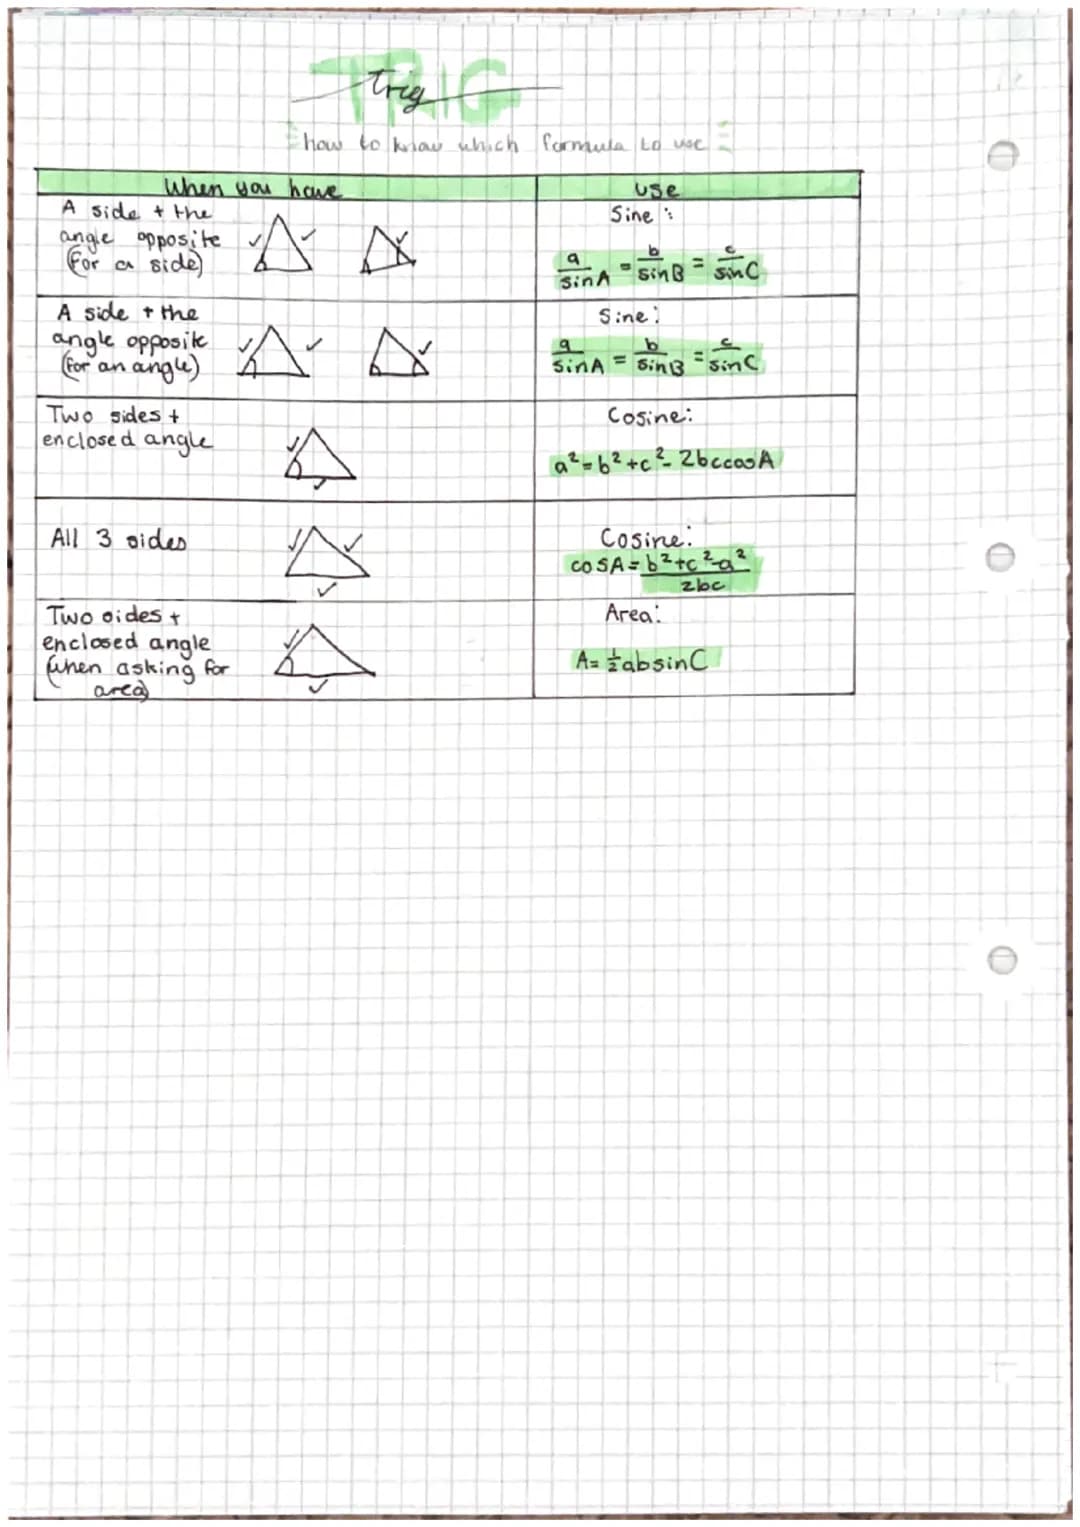 TRIG
Trig
how to know which formula to use
When you have
use
A side + the
angle opposite
(for a side)
Sine:
a/sinA = b/sinB = c/sinC
A side + the
angle opposite
(for an angle)
Sine:
a/sinA = b/sinB = c/sinC
Two sides +
enclosed angle
Cosine:
a² = b² + c² - 2bccosA
All 3 sides
Cosine:
cosA = b²+c²-a²/2bc
Two sides +
enclosed angle
(when asking for
area)
Area:
A= ½absinC